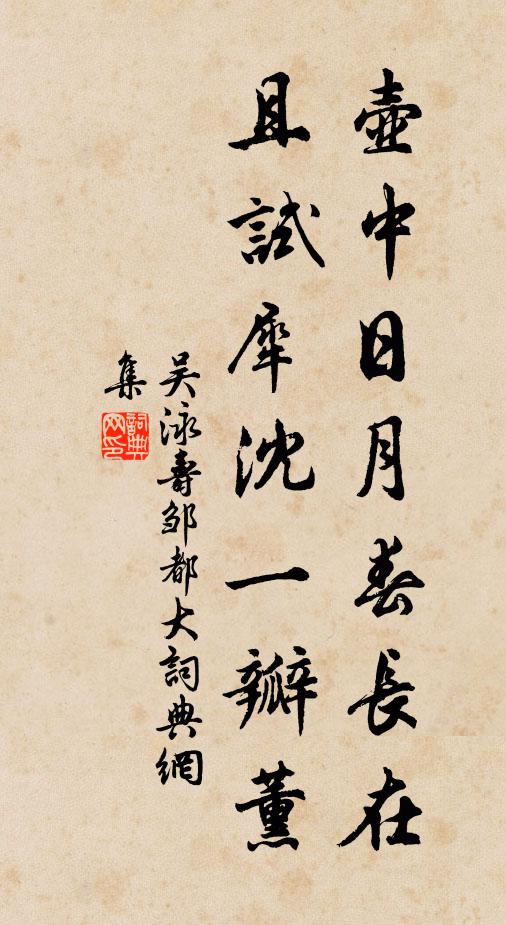 壺中日月春長在
且試犀沈一瓣薰
吴泳壽邹都大詞典網
集
詞典網印